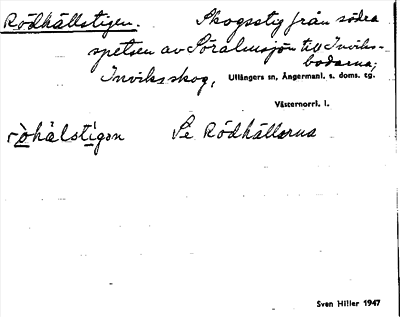 Rödhällstigen. Skogsstig från södra
spetsen av Söralmsjön till Inviks-
bodarna;
Inviksskog, Ullångers sn, Ångermanl. s. doms. tg.
Västernorrl. l.
ròhälstìgən Se Rödhällorna
Sven Hiller 1947